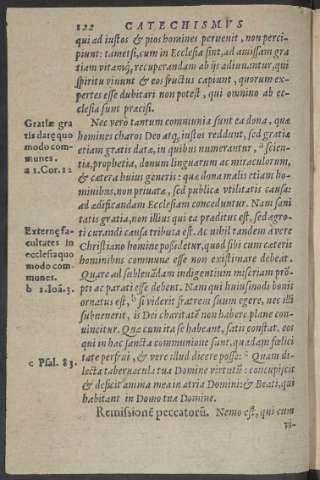 122 CATECHISMVS
qui ad iustos & pios homines peruenit, non perci-
piunt: tametsi, cum in Ecclesia sint, ad amissam gra
tiam vitamq́; recuperandam ab ijs adiuuantur, qui
spiritu viuunt & eos fructus capiunt, quorum ex-
pertes esse dubitari non potest, qui omnino ab ec-
clesia sunt præcisi.
Gratiæ gra
tis datę quo
modo com-
munes.
a 1.Cor.12
Nec vero tantum communia sunt ea dona, quæ
homines charos Deo atq; iustos reddunt, sed gratiæ
etiam gratis datæ, in quibus numerantur, a scien-
tia, prophetia, donum linguarum ac miraculorum,
& cætera huius generis: quæ dona malis etiam ho-
minibus, non priuatæ, sed publicæ vtilitatis causa:
ad ædificandam Ecclesiam conceduntur. Nam sani
tatis gratia, non illius qui ea præditus est, sed ægro-
ti curandi causa tributa est. Ac nihil tandem à vere
Christiano homine possidetur, quod sibi cum cæteris
hominibus commune esse non existimare debeat.
Externę fa-
cultates in
ecclesia quo
modo com-
munes.
b 1.Ioā.3.
Quare ad subleuādam indigentium miseriam prō-
pti ac parati esse debent. Nam qui huiusmodi bonis
ornatus est, b si viderit fratrem suum egere, nec illi
subuenerit, is Dei charitatē non habere plane con-
uincitur. Quæ cum ita se habeant, satis constat, eos
qui in hac sancta communione sunt, quadam fœlici
tate perfrui, & vere illud dicere posse: c Quam di-
c Psal. 83.
lecta tabernacula tua Domine virtutū: concupiscit
& deficit anima mea in atria Domini: & Beati, qui
habitant in Domo tua Domine.
Remissionē peccatorū. Nemo est, qui cum